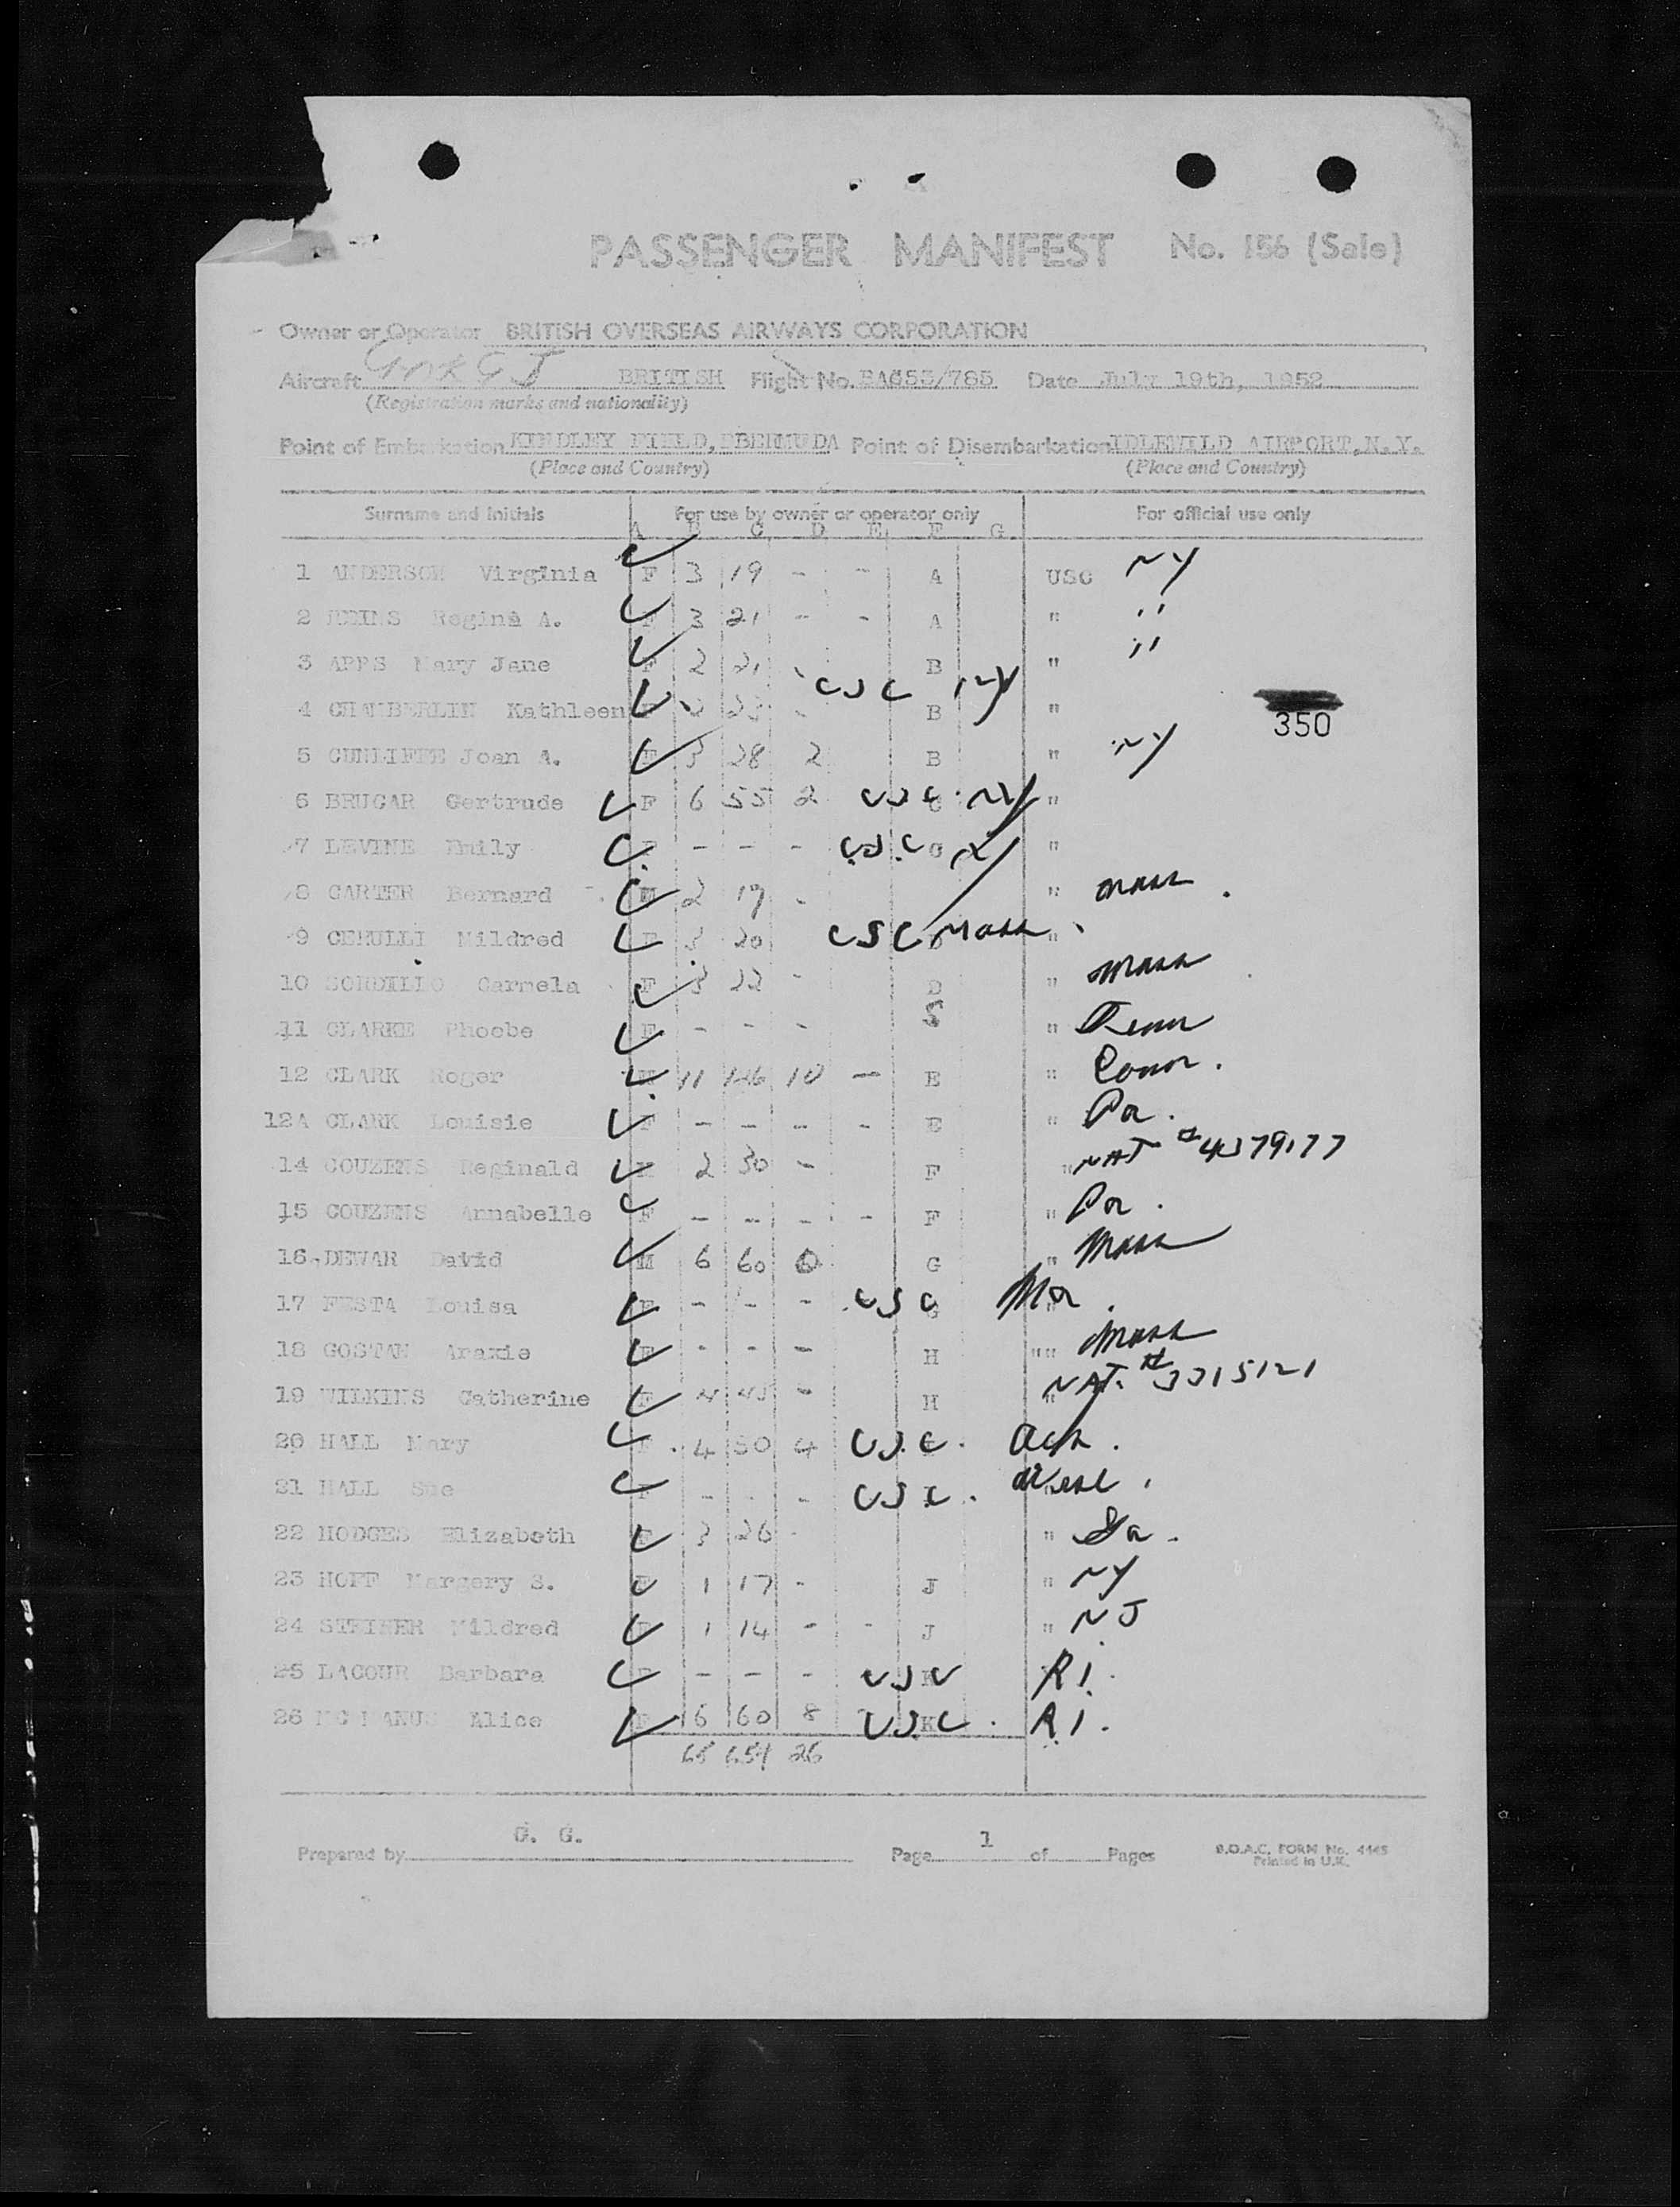 PASSENGER MANIFEST No. 156 (Sale)
Owner or Operator BRITISH OVERSEAS AIRWAYS CORPORATION
Aircraft BRITISH Flight No. 785 Date July 19th, 1952
(Registration marks and nationality)
Point of Embarkation KINDLEY FIELD, BERMUDA Point of Disembarkation IDLEWILD AIRPORT, N.Y.
(Place and Country) (Place and Country)
Surname and Initials For use by owner or operator only For official use only
A B C D E F G
1 ANDERSON Virginia F 3 19 - - A USC NY
2 Regina A. F 3 21 - - A " "
3 APPS Mary Jane F 2 21 B " "
4 CHAMBERLIN Kathleen - USC NY B "
350
5 CUNLIFFE Joan A. F 3 28 2 B " NY
6 BRUGAR Gertrude F 6 55 2 USC NY "
7 LEVINE Emily - - - USC "
8 CARTER Bernard M 2 19 - " Mass
9 CERULLI Mildred 3 20 USC Mass "
10 SORDILLO Carmela F 3 22 - D " Mass
11 CLARKE Phoebe F - - - "
12 CLARK Roger M 11 126 10 - E " Conn.
12A CLARK Louisie F - - - - E " Pa.
14 COUZENS Reginald 2 30 - F " NAT #
15 COUZENS Annabelle F - - - - F " Pa.
16 DEWAR David M 6 60 6 G " Mass
17 FESTA Louisa F - - - USC
18 GOSTAN Araxie F - - - H "" Mass
19 WILKINS Catherine F - H NAT. #
20 HALL Mary 4 50 4 USC.
21 HALL Sue F - - - USC.
22 HODGES Elizabeth F 3 26 - " Ga.
23 HOFF Margery S. F 1 17 - J " NY
24 STEINER Mildred 1 14 - - J " NJ
25 LACOUR Barbara - - - USC RI.
26 MCMANUS Alice F 6 60 8 USC K RI.
65 654 26
Prepared by G. G. Page 1 of Pages B.O.A.C. FORM No. 4445
Printed in U.K.